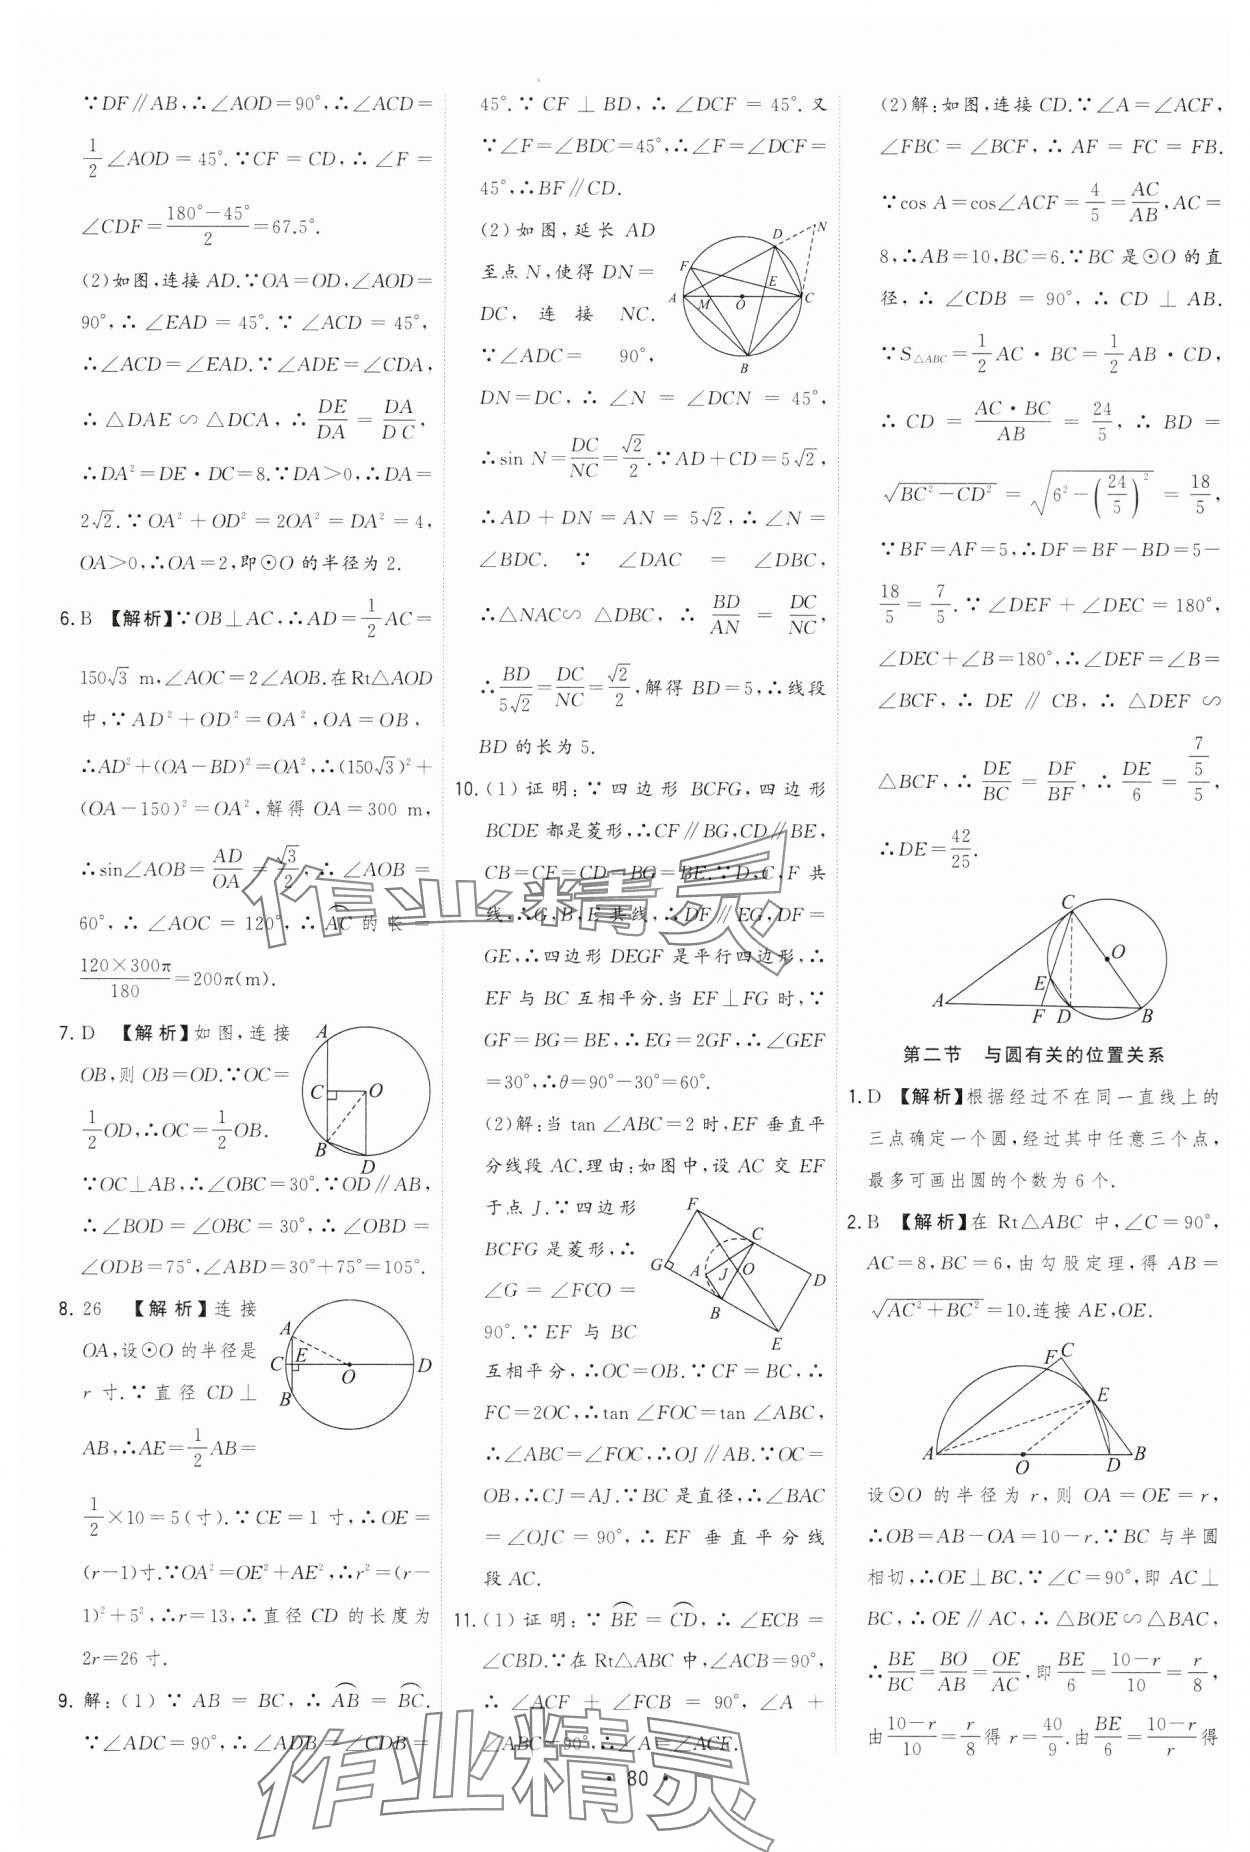 ∵DF∥AB,∴∠AOD=90°,∴∠ACD=
1/2∠AOD=45°.∵CF=CD,∴∠F=
∠CDF=(180°-45°)/2=67.5°.
(2)如图,连接AD.∵OA=OD,∠AOD=
90°,∴∠EAD=45°.∵∠ACD=45°,
∴∠ACD=∠EAD.∵∠ADE=∠CDA,
∴△DAE∽△DCA,∴DE/DA=DA/DC,
∴DA²=DE·DC=8.∵DA>0,∴DA=
2√2.∵OA²+OD²=2OA²=DA²=4,
OA>0,∴OA=2,即⊙O的半径为2.
6. B 【解析】∵OB⊥AC,∴AD=1/2AC=
150√3 m,∠AOC=2∠AOB.在Rt△AOD
中,∵AD²+OD²=OA²,OA=OB,
∴AD²+(OA-BD)²=OA²,∴(150√3)²+
(OA-150)²=OA²,解得OA=300 m,
∴sin∠AOB=AD/OA=√3/2,∴∠AOB=
60°,∴∠AOC=120°,∴⌒AC的长=
120×300π/180=200π(m).
7. D 【解析】如图,连接
OB,则OB=OD.∵OC=
1/2OD,∴OC=1/2OB.
∵OC⊥AB,∴∠OBC=30°.∵OD∥AB,
∴∠BOD=∠OBC=30°,∴∠OBD=
∠ODB=75°,∠ABD=30°+75°=105°.
A
C
O
B
D
8. 26 【解析】连接
OA,设⊙O的半径是
r寸.∵直径CD⊥
AB,∴AE=1/2AB=
1/2×10=5(寸).∵CE=1寸,∴OE=
(r-1)寸.∵OA²=OE²+AE²,∴r²=(r-
1)²+5²,∴r=13,∴直径CD的长度为
2r=26寸.
A
C E
D
O
B
9. 解:(1)∵AB=BC,∴⌒AB=⌒BC.
∵∠ADC=90°,∴∠ADB=∠CDB=
45°.∵CF⊥BD,∴∠DCF=45°.又
∵∠F=∠BDC=45°,∴∠F=∠DCF=
45°,∴BF∥CD.
(2)如图,延长AD
至点N,使得DN=
DC,连接NC.
∵∠ADC=90°,
DN=DC,∴∠N=∠DCN=45°,
∴sin N=DC/NC=√2/2.∵AD+CD=5√2,
∴AD+DN=AN=5√2,∴∠N=
∠BDC.∵∠DAC=∠DBC,
∴△NAC∽△DBC,∴BD/AN=DC/NC,
∴BD/5√2=DC/NC=√2/2,解得BD=5,∴线段
BD的长为5.
D N
F
E
A M O C
B
10. (1)证明:∵四边形BCFG,四边形
BCDE都是菱形,∴CF∥BG,CD∥BE,
CB=CF=CD=BG=BE.∵D,C,F共
线,∴G,B,E共线,∴DF∥EG,DF=
GE,∴四边形DEGF是平行四边形,∴
EF与BC互相平分.当EF⊥FG时,∵
GF=BG=BE,∴EG=2GF,∴∠GEF
=30°,∴θ=90°-30°=60°.
(2)解:当tan∠ABC=2时,EF垂直平
分线段AC.理由:如图中,设AC交EF
于点J.∵四边形
BCFG是菱形,∴
∠G=∠FCO=
90°.∵EF与BC
互相平分,∴OC=OB.∵CF=BC,∴
FC=2OC,∴tan∠FOC=tan∠ABC,
∴∠ABC=∠FOC,∴OJ∥AB.∵OC=
OB,∴CJ=AJ.∵BC是直径,∴∠BAC
=∠OJC=90°,∴EF垂直平分线
段AC.
F
C
G
A J O
D
B
E
11. (1)证明:∵⌒BE=⌒CD,∴∠ECB=
∠CBD.∵在Rt△ABC中,∠ACB=90°,
∴∠ACF+∠FCB=90°,∠A+
∠ABC=90°,∴∠A=∠ACF.
(2)解:如图,连接CD.∵∠A=∠ACF,
∠FBC=∠BCF,∴AF=FC=FB.
∵cos A=cos∠ACF=4/5=AC/AB,AC=
8,∴AB=10,BC=6.∵BC是⊙O的直
径,∴∠CDB=90°,∴CD⊥AB.
∵S△ABC=1/2AC·BC=1/2AB·CD,
∴CD=AC·BC/AB=24/5,∴BD=
√(BC²-CD²)=√(6²-(24/5)²)=18/5,
∵BF=AF=5,∴DF=BF-BD=5-
18/5=7/5.∵∠DEF+∠DEC=180°,
∠DEC+∠B=180°,∴∠DEF=∠B=
∠BCF,∴DE∥CB,∴△DEF∽
△BCF,∴DE/BC=DF/BF,∴DE/6=(7/5)/5,
∴DE=42/25.
C
O
E
A
F D B
第二节 与圆有关的位置关系
1. D 【解析】根据经过不在同一直线上的
三点确定一个圆,经过其中任意三个点,
最多可画出圆的个数为6个.
2. B 【解析】在Rt△ABC中,∠C=90°,
AC=8,BC=6,由勾股定理,得AB=
√(AC²+BC²)=10.连接AE,OE.
F C
E
A O D B
设⊙O的半径为r,则OA=OE=r,
∴OB=AB-OA=10-r.∵BC与半圆
相切,∴OE⊥BC.∵∠C=90°,即AC⊥
BC,∴OE∥AC,∴△BOE∽△BAC,
∴BE/BC=BO/AB=OE/AC,即BE/6=(10-r)/10=r/8,
由(10-r)/10=r/8得r=40/9.由BE/6=(10-r)/r得
·80·
作业精灵
作业精灵